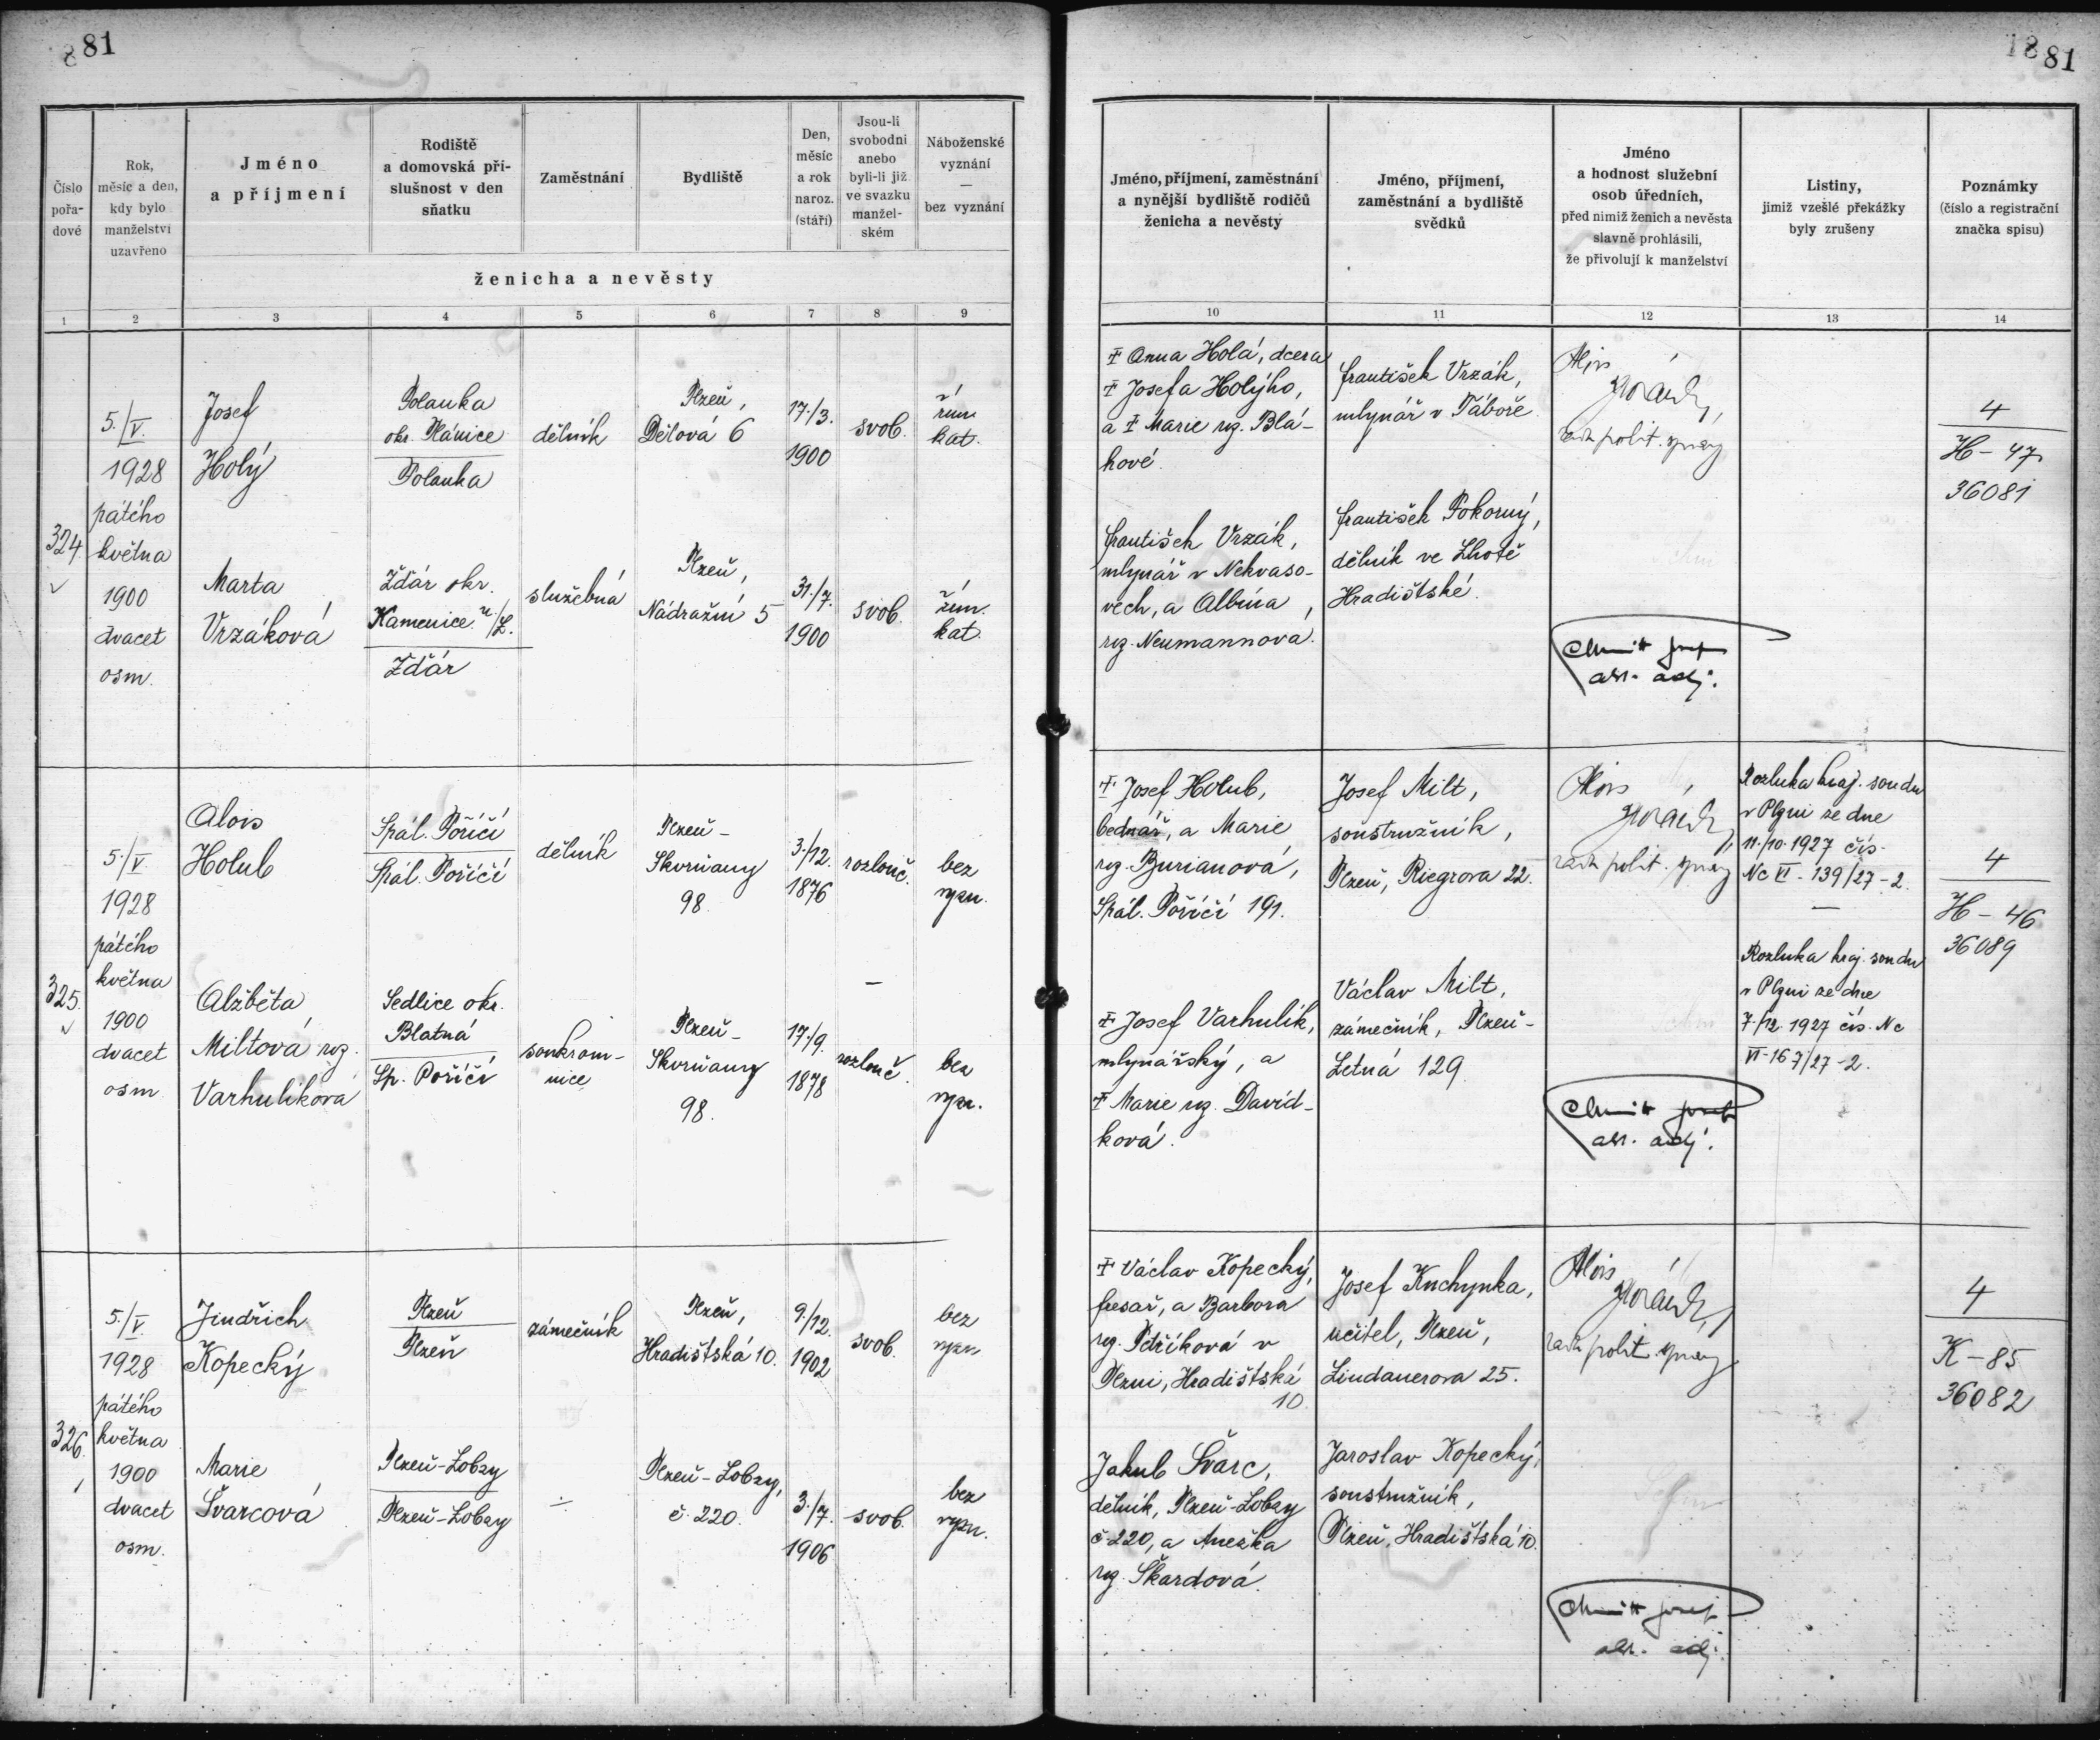 81
81
Číslo
pořa-
dové
Rok,
měsíc a den,
kdy bylo
manželství
uzavřeno
Jméno
a příjmení
Rodiště
a domovská pří-
slušnost v den
sňatku
Zaměstnání
Bydliště
Den,
měsíc
a rok
naroz.
(stáří)
Jsou-li
svobodni
anebo
byli-li již
ve svazku
manžel-
ském
Náboženské
vyznání
—
bez vyznání
ženicha a nevěsty
1 2 3 4 5 6 7 8 9
Jméno, příjmení, zaměstnání
a nynější bydliště rodičů
ženicha a nevěsty
Jméno, příjmení,
zaměstnání a bydliště
svědků
Jméno
a hodnost služební
osob úředních,
před nimiž ženich a nevěsta
slavně prohlásili,
že přivolují k manželství
Listiny,
jimiž vzešlé překážky
byly zrušeny
Poznámky
(číslo a registrační
značka spisu)
10 11 12 13 14
324.
5./V.
1928
pátého
května
1900
dvacet
osm.
Josef
Holý
Polanka
okr. Plánice
Polanka
dělník
Plzeň,
Dělová 6
17./3.
1900
svob.
řím.
kat.
Marta
Vrzáková
Žďár okr.
Kamenice n./L.
Žďár
služebná
Plzeň,
Nádražní 5
31./7.
1900
svob.
řím.
kat.
† Anna Holá, dcera
† Josefa Holýho,
a † Marie roz. Blá-
hové.
František Vrzák,
mlynář v Nekvaso-
vech, a Albína,
roz. Neumannová.
František Vrzák,
mlynář v Táboře.
František Pokorný,
dělník ve Lhotě
Hradištské.
Alois
rada polit. správy
Josef
adj.
4
H – 47
36081
325.
5./V.
1928
pátého
května
1900
dvacet
osm
Alois
Holub
Spál. Poříčí
Spál. Poříčí
dělník
Plzeň-
Skvrňany
98.
3./12.
1876
rozlouč.
bez
vyzn.
—
Alžběta
Miltová roz.
Varhulíková
Sedlice okr.
Blatná
Sp. Poříčí
soukrom-
nice
Plzeň-
Skvrňany
98.
17./9.
1878
rozlouč.
bez
vyzn.
† Josef Holub,
bednář, a Marie
roz. Burianová,
Spál. Poříčí 191.
† Josef Varhulík,
mlynářský, a
† Marie roz. David-
ková.
Josef Milt,
soustružník,
Plzeň, Riegrova 22.
Václav Milt,
zámečník, Plzeň-
Letná 129.
Alois
rada polit. správy
Josef
adj.
Rozluka kraj. soudu
v Plzni ze dne
11./10. 1927 čís.
Nc VI - 139/27 - 2.
—
Rozluka kraj. soudu
v Plzni ze dne
7./12. 1927 čís. Nc
VI - 167/27 - 2.
4
H – 46
36089
326.
5./V.
1928
pátého
května
1900
dvacet
osm.
Jindřich
Kopecký
Plzeň
Plzeň
zámečník
Plzeň,
Hradištská 10.
9./12.
1902
svob.
bez
vyzn
Marie
Švarcová
Plzeň-Lobzy
Plzeň-Lobzy
Plzeň-Lobzy,
č. 220.
3./7.
1906
svob.
bez
vyzn.
† Václav Kopecký,
fresař, a Barbora
roz. Petříková v
Plzni, Hradištská
10.
Jakub Švarc,
dělník, Plzeň-Lobzy
č. 220, a Anežka
roz. Škardová.
Josef Kuchynka,
učitel, Plzeň,
Lindauerova 25.
Jaroslav Kopecký,
soustružník,
Plzeň, Hradištská 10.
Alois
rada polit. správy
Josef
adj.
4
K – 85
36082